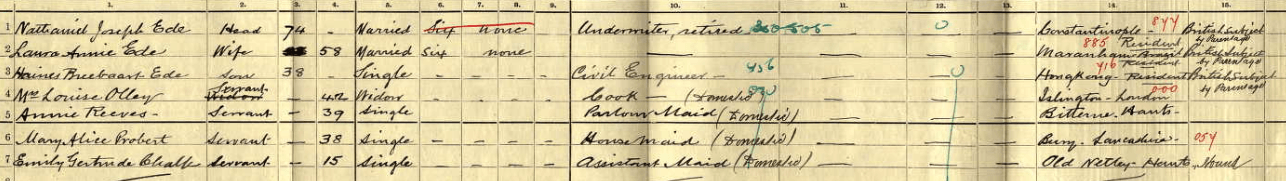 1. 2. 3. 4. 5. 6. 7. 8. 9. 10. 11. 12. 13. 14. 15.
1 Nathaniel Joseph Ede Head 74 - Married Six none Underwriter, retired 0 Constantinople 844 British Subject by Parentage
2 Laura Annie Ede Wife 58 Married Six none — — — 885 Resident Maranham Brazil British Subject by Parentage
3 Haines Breebaart Ede Son 38 Single Civil Engineer — 456 — 0 — 416 Resident Hongkong - Resident British Subject by Parentage
4 Mrs Louise Olley Servant Widow - 42 Widow Cook — (Domestic) — — — 000 Islington - London
5 Annie Reeves - Servant - 39 Single Parlour Maid (Domestic) — — Bitterne. Hants -
6 Mary Alice Probert Servant - 38 Single House Maid (Domestic) — — Bury - Lancashire - 054
7 Emily Gertrude Chalk Servant - 15 Single Assistant Maid (Domestic) — — Old Netley Hants, Hound